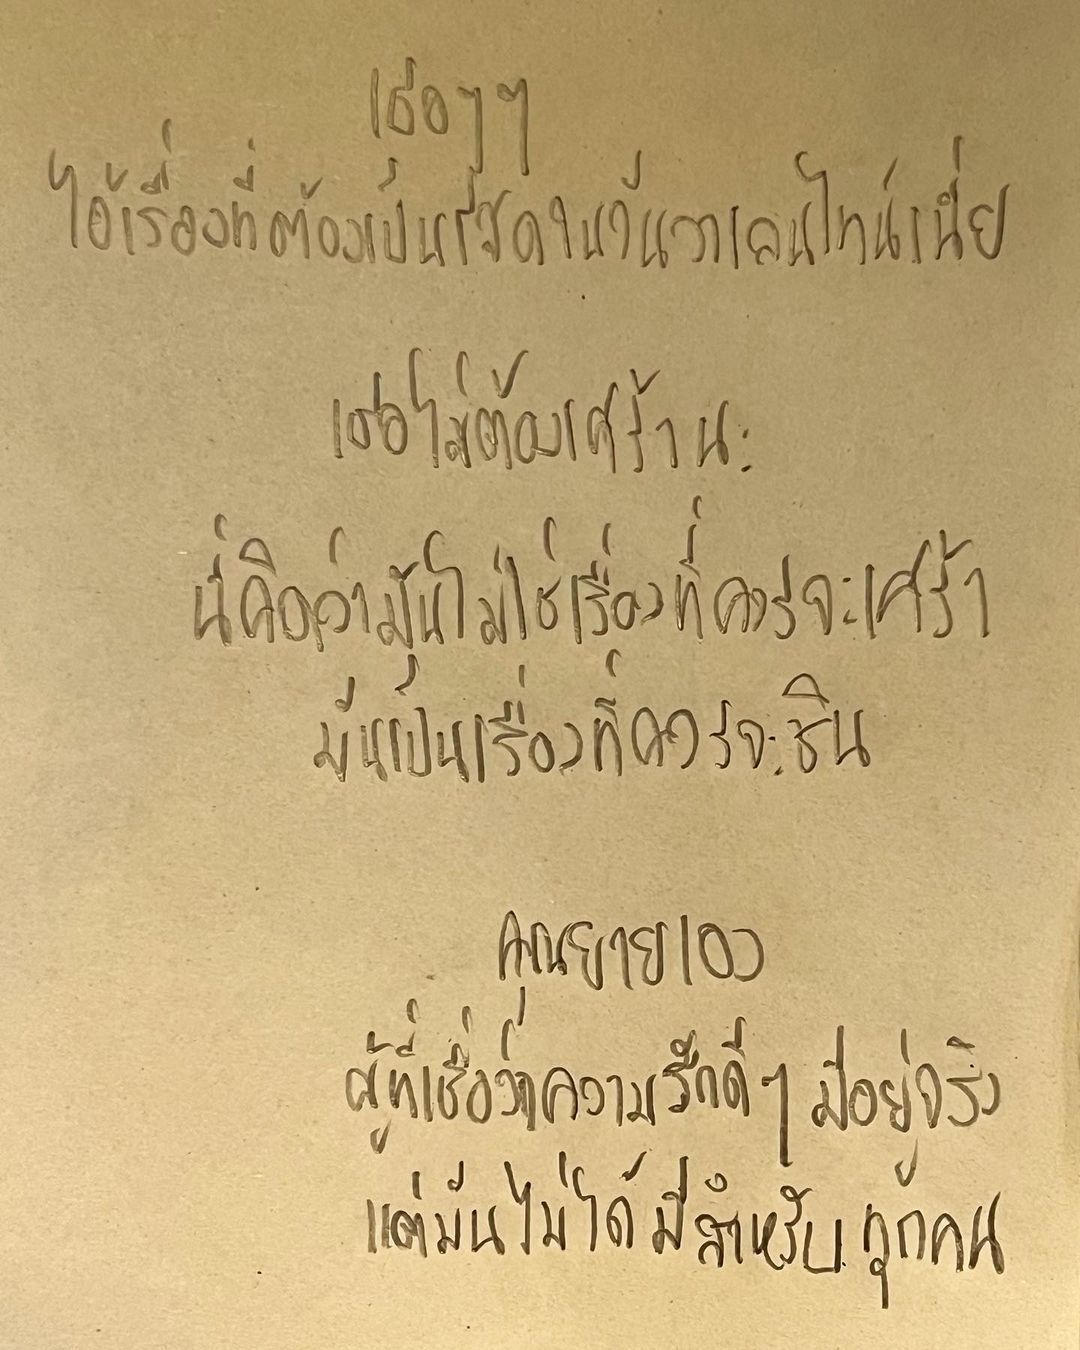 เธอๆ ๆ
ไอ้เรื่องที่ต้องเป็นโสดในวันวาเลนไทน์เนี่ย
เธอไม่ต้องเศร้านะ
นี่คิดว่ามันไม่ใช่เรื่องที่ควรจะเศร้า
มันเป็นเรื่องที่ควรจะชิน
คุณยายเอง
ผู้ที่เชื่อว่าความรักดีๆ มีอยู่จริง
แต่มันไม่ได้มีสำหรับทุกคน